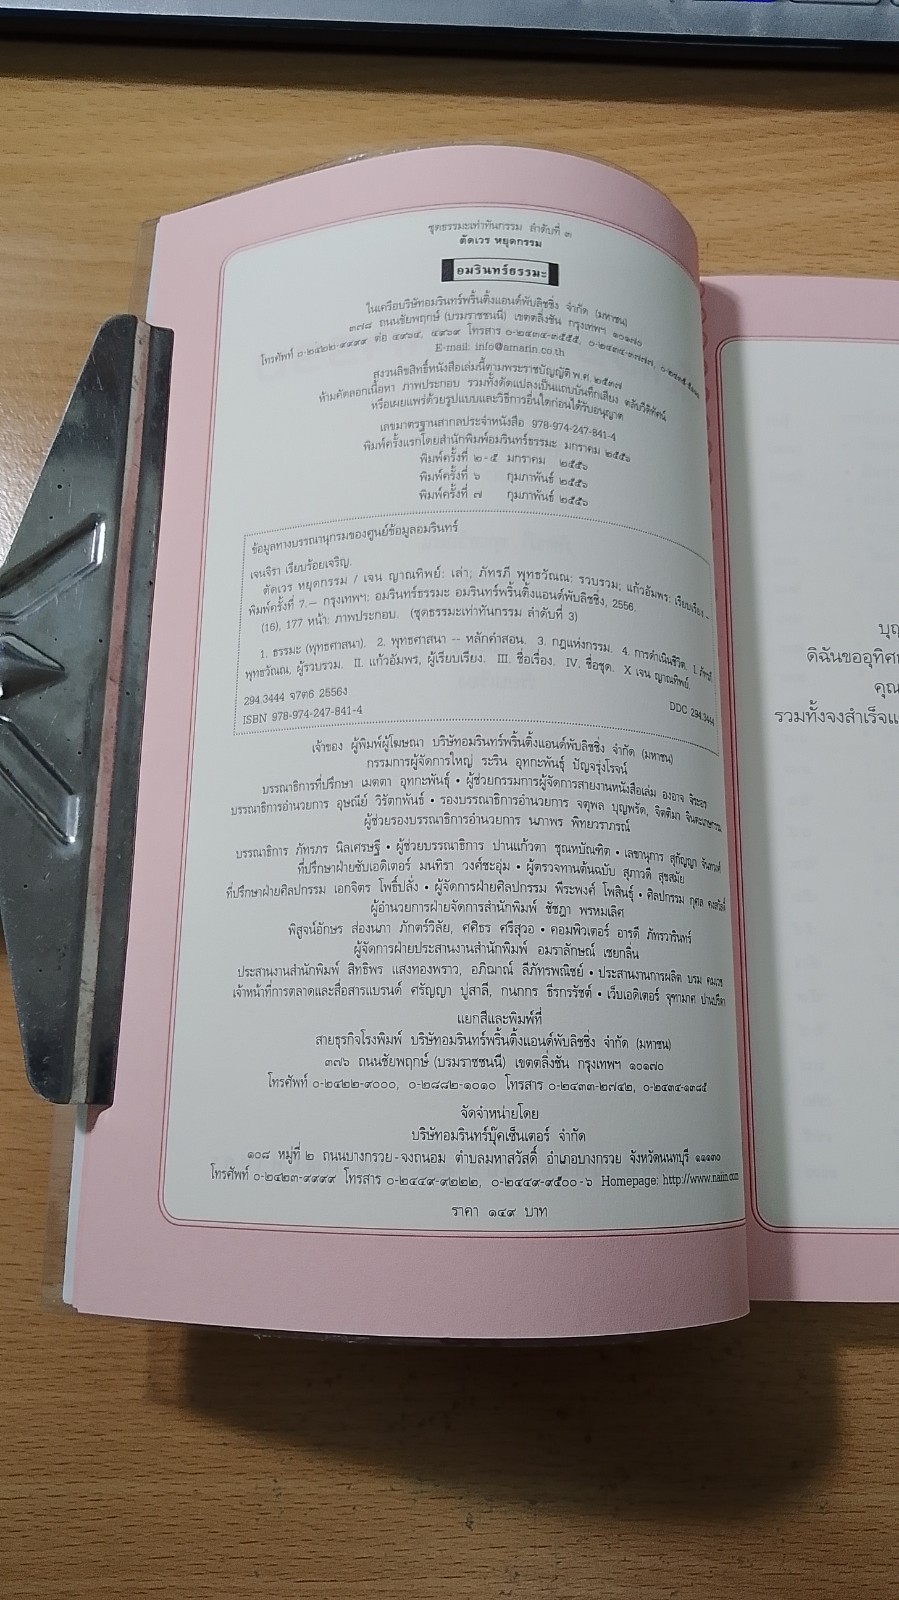 ชุดธรรมะเท่าทันกรรม ลำดับที่ ๓
ตัดเวร หยุดกรรม
อมรินทร์ธรรมะ
ในเครือบริษัทอมรินทร์พริ้นติ้งแอนด์พับลิชชิ่ง จำกัด (มหาชน)
๓๗๘ ถนนชัยพฤกษ์ (บรมราชชนนี) เขตตลิ่งชัน กรุงเทพฯ ๑๐๑๗๐
โทรศัพท์ ๐-๒๔๒๒-๙๙๙๙ ต่อ ๔๙๖๔, ๔๙๖๙ โทรสาร ๐-๒๔๓๔-๓๕๕๕, ๐-๒๔๓๔-๓๗๗๗,
E-mail: info@amarin.co.th
สงวนลิขสิทธิ์หนังสือเล่มนี้ตามพระราชบัญญัติ พ.ศ. ๒๕๓๗
ห้ามคัดลอกเนื้อหา ภาพประกอบ รวมทั้งดัดแปลงเป็นแถบบันทึกเสียง ตลับวีดิทัศน์
หรือเผยแพร่ด้วยรูปแบบและวิธีการอื่นใดก่อนได้รับอนุญาต
เลขมาตรฐานสากลประจำหนังสือ 978-974-247-841-4
พิมพ์ครั้งแรกโดยสำนักพิมพ์อมรินทร์ธรรมะ มกราคม ๒๕๕๖
พิมพ์ครั้งที่ ๒-๕ มกราคม ๒๕๕๖
พิมพ์ครั้งที่ ๖ กุมภาพันธ์ ๒๕๕๖
พิมพ์ครั้งที่ ๗ กุมภาพันธ์ ๒๕๕๖
ข้อมูลทางบรรณานุกรมของศูนย์ข้อมูลอมรินทร์
เจนจิรา เรียบร้อยเจริญ.
ตัดเวร หยุดกรรม / เจน ญาณทิพย์: เล่า; ภัทรภี พุทธวัณณ: รวบรวม; แก้วอัมพร: เรียบเรียง.--
พิมพ์ครั้งที่ 7.-- กรุงเทพฯ: อมรินทร์ธรรมะ อมรินทร์พริ้นติ้งแอนด์พับลิชชิ่ง, 2556.
(16), 177 หน้า: ภาพประกอบ. (ชุดธรรมะเท่าทันกรรม ลำดับที่ 3)
1. ธรรมะ (พุทธศาสนา). 2. พุทธศาสนา -- หลักคำสอน. 3. กฎแห่งกรรม. 4. การดำเนินชีวิต. I. ภัทรภี
พุทธวัณณ, ผู้รวบรวม. II. แก้วอัมพร, ผู้เรียบเรียง. III. ชื่อเรื่อง. IV. ชื่อชุด. X เจน ญาณทิพย์.
294.3444 จ7ต6 2556ง
DDC 294.3444
ISBN 978-974-247-841-4
เจ้าของ ผู้พิมพ์ผู้โฆษณา บริษัทอมรินทร์พริ้นติ้งแอนด์พับลิชชิ่ง จำกัด (มหาชน)
กรรมการผู้จัดการใหญ่ ระริน อุทกะพันธุ์ ปัญจรุ่งโรจน์
บรรณาธิการที่ปรึกษา เมตตา อุทกะพันธุ์ • ผู้ช่วยกรรมการผู้จัดการสายงานหนังสือเล่ม องอาจ จิระอร
บรรณาธิการอำนวยการ อุษณีย์ วิรัตกพันธ์ • รองบรรณาธิการอำนวยการ จตุพล บุญพรัด, จิตติมา
ผู้ช่วยรองบรรณาธิการอำนวยการ นภาพร พิทยวราภรณ์
บรรณาธิการ ภัทรภร นิลเศรษฐี • ผู้ช่วยบรรณาธิการ ปานแก้วตา ชุณหบัณฑิต • เลขานุการ สุกัญญา จันทวดี
ที่ปรึกษาฝ่ายซับเอดิเตอร์ มนทิรา วงศ์ชะอุ่ม • ผู้ตรวจทานต้นฉบับ สุภาวดี สุขสมัย
ที่ปรึกษาฝ่ายศิลปกรรม เอกจิตร โพธิ์ปลั่ง • ผู้จัดการฝ่ายศิลปกรรม พีระพงศ์ โพสินธุ์ • ศิลปกรรม กุศล
ผู้อำนวยการฝ่ายจัดการสำนักพิมพ์ ชัชฎา พรหมเลิศ
พิสูจน์อักษร ส่องนภา ภักตร์วิลัย, ศศิธร ศรีสุวอ • คอมพิวเตอร์ อารุดี ภัทรวารินทร์
ผู้จัดการฝ่ายประสานงานสำนักพิมพ์ อมราลักษณ์ เชยกลิ่น
ประสานงานสำนักพิมพ์ สิทธิพร แสงทองพราว, อภิฌาณ์ ลีภัทรพณิชย์ • ประสานงานการผลิต บรม คมเวช
เจ้าหน้าที่การตลาดและสื่อสารแบรนด์ ศรัญญา ปูสาลี, กนกกร ธีรกรรัชต์ • เว็บเอดิเตอร์ จุฑามาศ ปานปรีดา
แยกสีและพิมพ์ที่
สายธุรกิจโรงพิมพ์ บริษัทอมรินทร์พริ้นติ้งแอนด์พับลิชชิ่ง จำกัด (มหาชน)
๓๗๖ ถนนชัยพฤกษ์ (บรมราชชนนี) เขตตลิ่งชัน กรุงเทพฯ ๑๐๑๗๐
โทรศัพท์ ๐-๒๔๒๒-๙๐๐๐, ๐-๒๘๘๒-๑๐๑๐ โทรสาร ๐-๒๔๓๓-๒๗๔๒, ๐-๒๔๓๔-๑๓๘๕
จัดจำหน่ายโดย
บริษัทอมรินทร์บุ๊คเซ็นเตอร์ จำกัด
๑๐๘ หมู่ที่ ๒ ถนนบางกรวย-จงถนอม ตำบลมหาสวัสดิ์ อำเภอบางกรวย จังหวัดนนทบุรี ๑๑๑๓๐
โทรศัพท์ ๐-๒๔๒๓-๙๙๙๙ โทรสาร ๐-๒๔๔๙-๙๒๒๒, ๐-๒๔๔๙-๙๕๐๐-๖ Homepage: http://www.naiin.com
ราคา ๑๔๙ บาท
บุญ
ดิฉันขออุทิศ
คุณ
รวมทั้งจงสำเร็จแ